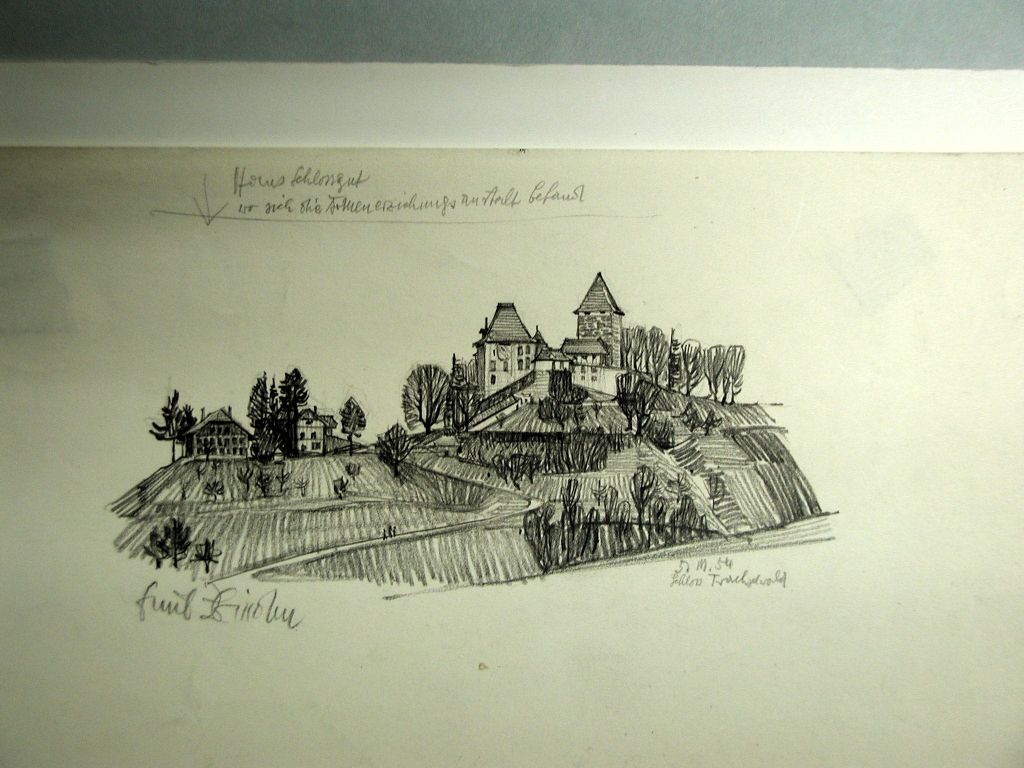 Haus Schlossgut
wo sich die Armenerziehungsanstalt befand
5. III. 54
Schloss Trachselwald
Emil Zbinden